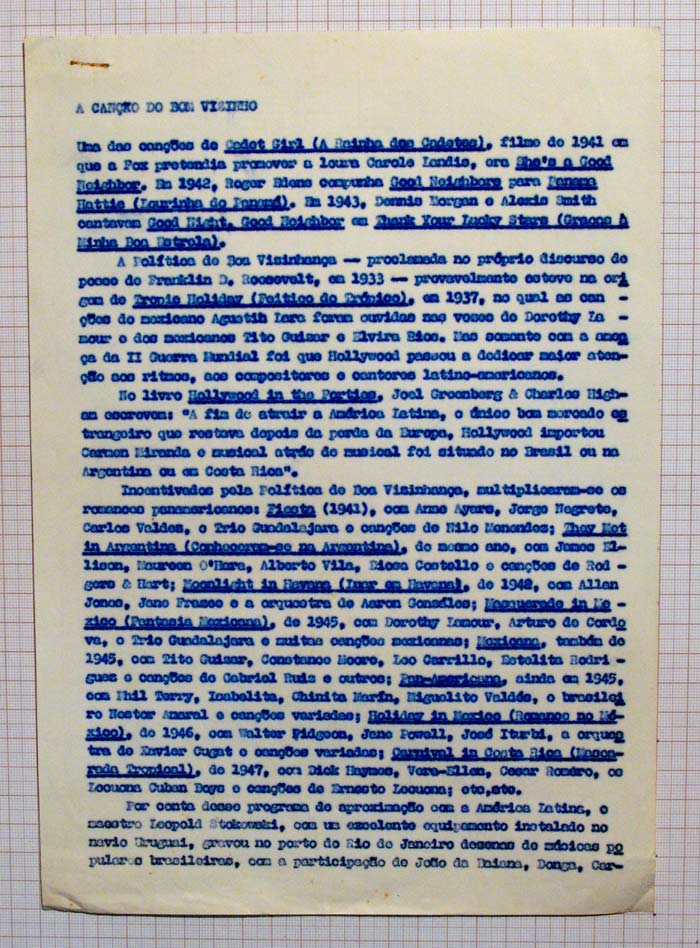 A CANÇÃO DO BOM VIZINHO
Uma das canções de Cadet Girl (A Rainha dos Cadetes), filme de 1941 em
que a Fox pretendia promover a loura Carole Landis, era She's a Good
Neighbor. Em 1942, Roger Edens compunha Good Neighbors para Panama
Hattie (Lourinha do Panamá). Em 1943, Dennis Morgan e Alexis Smith
cantavam Good Night, Good Neighbor em Thank Your Lucky Stars (Graças À
Minha Boa Estrela).
A Política de Boa Vizinhança -- proclamada no próprio discurso de
posse de Franklin D. Roosevelt, em 1933 -- provavelmente esteve na ori
gem de Tropic Holiday (Feitiço do Trópico), em 1937, no qual as can -
ções do mexicano Agustin Lara foram ouvidas nas vozes de Dorothy La -
mour e dos mexicanos Tito Guizar e Elvira Rios. Mas somente com a amea
ça da II Guerra Mundial foi que Hollywood passou a dedicar maior aten-
ção aos ritmos, aos compositores e cantores latino-americanos.
No livro Hollywood in the Forties, Joel Greenberg & Charles High-
am escrevem: "A fim de atrair a América Latina, o único bom mercado es
trangeiro que restava depois da perda da Europa, Hollywood importou
Carmen Miranda e musical atrás de musical foi situado no Brasil ou na
Argentina ou em Costa Rica".
Incentivados pela Política de Boa Vizinhança, multiplicaram-se os
romances panamericanos: Fiesta (1941), com Anne Ayars, Jorge Negrete,
Carlos Valdes, o Trio Guadalajara e canções de Nilo Menendez; They Met
in Argentina (Conheceram-se na Argentina), do mesmo ano, com James El-
lison, Maureen O'Hara, Alberto Vila, Diosa Costello e canções de Rod -
gers & Hart; Moonlight in Havana (Luar em Havana), de 1942, com Allan
Jones, Jane Frazee e a orquestra de Aaron Gonzáles; Masquerade in Me -
xico (Fantasia Mexicana), de 1945, com Dorothy Lamour, Arturo de Cordo
va, o Trio Guadalajara e muitas canções mexicanas; Mexicana, também de
1945, com Tito Guizar, Constance Moore, Leo Carrillo, Estelita Rodri -
guez e canções de Gabriel Ruiz e outros; Pan-Americana, ainda em 1945,
com Phil Terry, Isabelita, Chinita Marín, Miguelito Valdés, o brasilei
ro Nestor Amaral e canções variadas; Holiday in Mexico (Romance no Mé-
xico), de 1946, com Walter Pidgeon, Jane Powell, José Iturbi, a orques
tra de Xavier Cugat e canções variadas; Carnival in Costa Rica (Masca-
rada Tropical), de 1947, com Dick Haymes, Vera-Ellen, Cesar Roméro, os
Lecuona Cuban Boys e canções de Ernesto Lecuona; etc,etc.
Por conta desse programa de aproximação com a América Latina, o
maestro Leopold Stokowski, com um excelente equipamento instalado no
navio Uruguai, gravou no porto do Rio de Janeiro dezenas de músicas po
pulares brasileiras, com a participação de João da Baiana, Donga, Car-